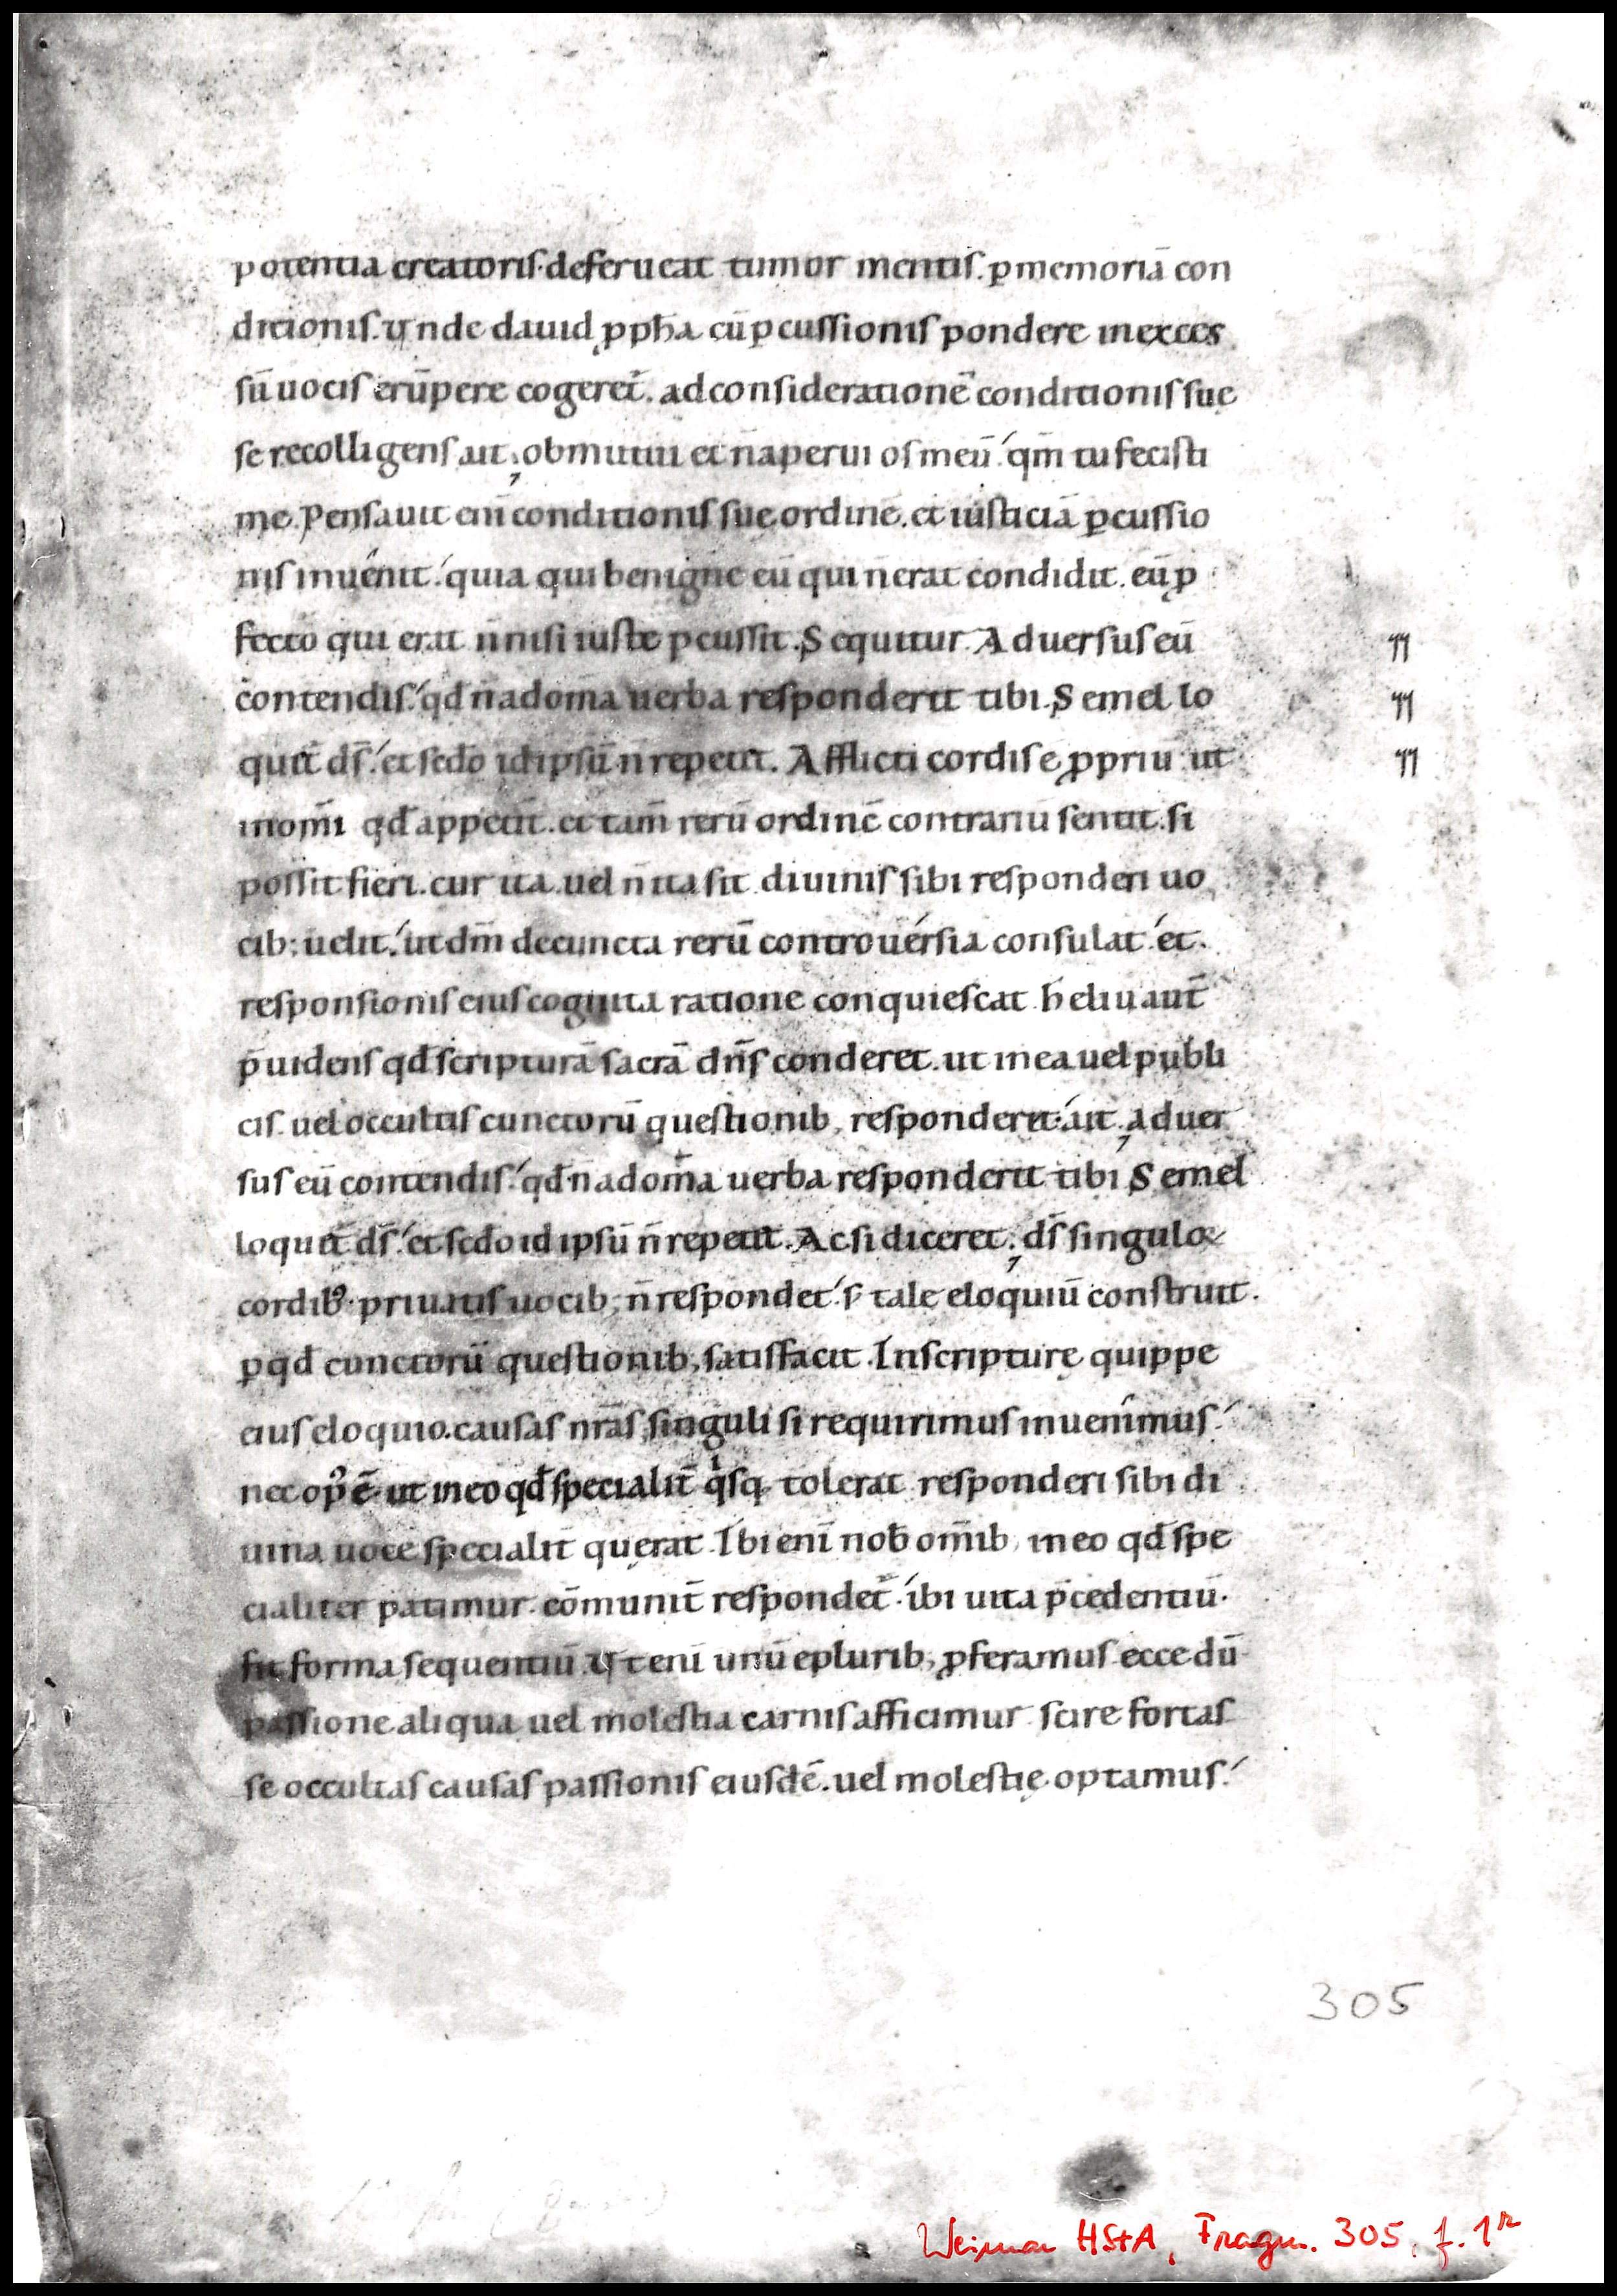 potentia creatoris. deferueat tumor mentis. ꝑ memoriā con
ditionis. Vnde dauid ꝓph̄a cū ꝑcussionis pondere in exces
sū uocis erūpere cogeret̄. ad considerationē conditionis sue
se recolligens ait, obmutui et n̄ aperui os meū. qm̄ tu fecisti
me. Pensauit eni̅ conditionis suę ordinē. et iusticiā ꝑcussio
nis inuenit. quia qui benigne eū qui n̄ erat condidit. eū ꝓ
fecto qui erat n̄ nisi iuste ꝑcussit. Sequitur. Aduersus eū
contendis. qd̄ n̄ ad om̄a uerba responderit tibi. Semel lo
quit̄ ds̄. et scd̄o id ipsū n̄ repetit. Afflicti cordis ę ꝓpriū ut
in om̄i qd̄ appetit. et tam̄ rerū ordinē contrariū sentit. si
possit fieri. cur ita. uel n̄ ita sit diuinis sibi responderi uo
cib; uelit. ut dm̄ de cuncta rerū controuersia consulat. et
responsionis eius cognita ratione conquiescat. heliu aut̄
p̄uidens qd̄ scripturā sacrā dn̄s conderet. ut in ea uel publi
cis. uel occultis cunctorū questionib; responderet. ait. aduer
sus eū contendis. qd̄ n̄ ad om̄a uerba responderit tibi. Semel
loquit̄ ds̄. et scd̄o id ipsū n̄ repetit. Ac si diceret, ds̄ singuloꝝ
cordibꝰ. priuatis uocib; n̄ respondet. s; tale eloquiū construit.
ꝑ qd̄ cunctorū questionib; satisfacit. In scripturę quippe
eius eloquio. causas nr̄as singuli si requirimus inuenimus.
nec opꝰ ē. ut in eo qd̄ specialit̄ qͥsq; tolerat responderi sibi di
uina uoce specialit̄ querat. Ibi eni̅ nob̄ om̄ib; in eo qd̄ spe
cialiter patimur. cōmunit̄ respondet̄. ibi uita p̄cedentiū.
fit forma sequentiū. Vt eni̅ unū e plurib; ꝓferamus. ecce dū
passione aliqua uel molestia carnis afficimur. scire fortas
se occultas causas passionis eiusdē. uel molestię. optamus.
305
Weimar HStA, Fragm. 305, f. 1r